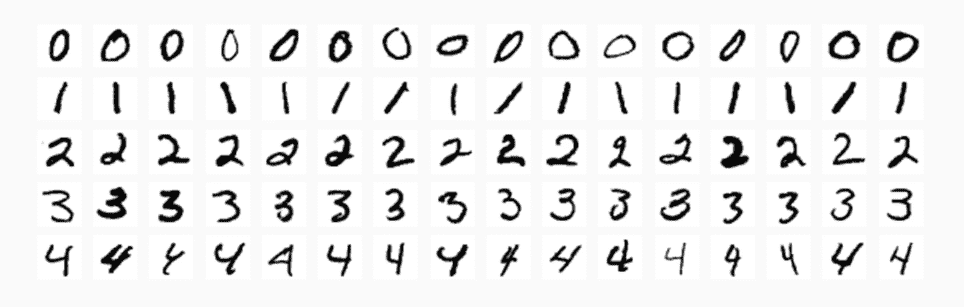 0 0 0 0 0 0 0 0 0 0 0 0 0 0 0 0
1 1 1 1 1 1 1 1 1 1 1 1 1 1 1 1
2 2 2 2 2 2 2 2 2 2 2 2 2 2 2 2
3 3 3 3 3 3 3 3 3 3 3 3 3 3 3 3
4 4 4 4 4 4 4 4 4 4 4 4 4 4 4 4